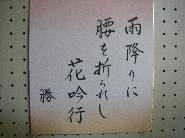 雨降りに
腰を折られし
花吟行
勝